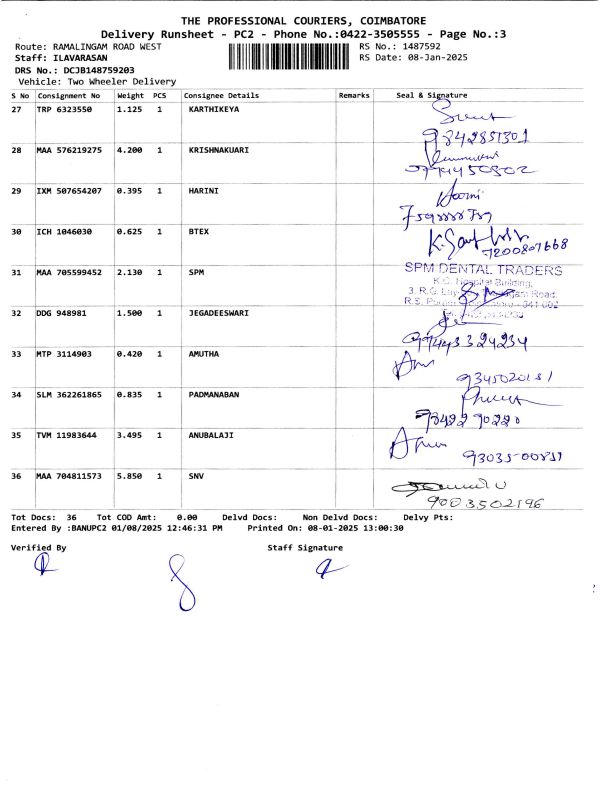 THE PROFESSIONAL COURIERS, COIMBATORE
Delivery Runsheet - PC2 - Phone No.:0422-3505555 - Page No.:3
Route: RAMALINGAM ROAD WEST RS No.: 1487592
Staff: ILAVARASAN RS Date: 08-Jan-2025
DRS No.: DCJB148759203
Vehicle: Two Wheeler Delivery
S No Consignment No Weight PCS Consignee Details Remarks Seal & Signature
27 TRP 6323550 1.125 1 KARTHIKEYA
9342851301
28 MAA 576219275 4.200 1 KRISHNAKUARI
29 IXM 507654207 0.395 1 HARINI
30 ICH 1046030 0.625 1 BTEX
7200807668
31 MAA 705599452 2.130 1 SPM
SPM DENTAL TRADERS
K.G. Hospital Building,
32 DDG 948981 1.500 1 JEGADEESWARI
99443324234
33 MTP 3114903 0.420 1 AMUTHA
34 SLM 362261865 0.835 1 PADMANABAN
35 TVM 11983644 3.495 1 ANUBALAJI
36 MAA 704811573 5.850 1 SNV
9003502196
Tot Docs: 36 Tot COD Amt: 0.00 Delvd Docs: Non Delvd Docs: Delvy Pts:
Entered By :BANUPC2 01/08/2025 12:46:31 PM Printed On: 08-01-2025 13:00:30
Verified By Staff Signature